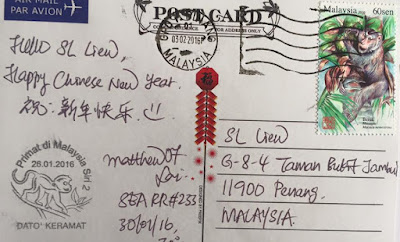 AIR MAIL
PAR AVION
POST CARD
FOR ADDRESS ONLY
03 02 2016
MALAYSIA
Malaysia 2016
60sen
Hello SL Liew,
Happy Chinese New Year.
祝:新年快乐.
Primat di Malaysia Siri 2
26.01.2016
DATO' KERAMAT
Matthew
SEA RR#233
30/01/16,
福
SL Liew
G-8-4 Taman Bukit Jambul
11900 Penang.
MALAYSIA.